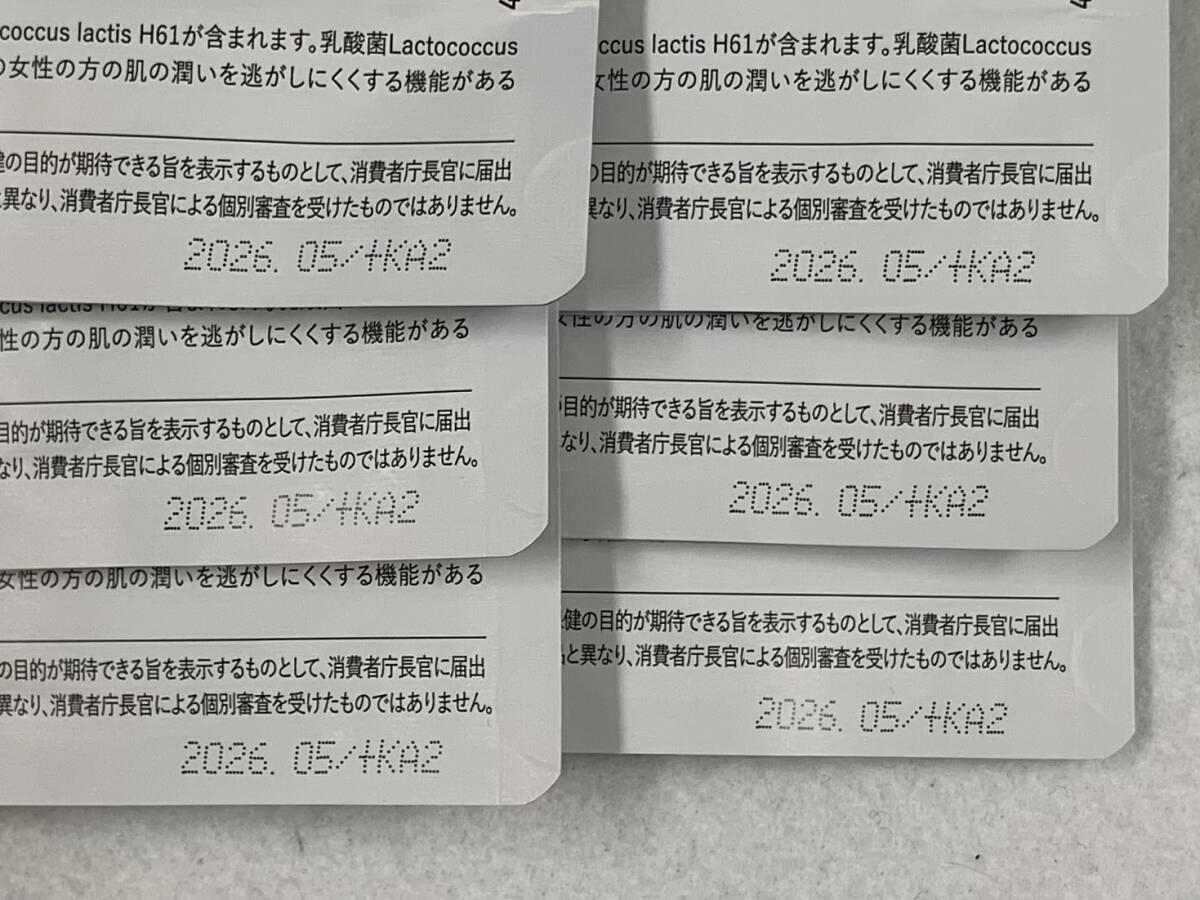 coccus lactis H61が含まれます。乳酸菌Lactococcus
の女性の方の肌の潤いを逃がしにくくする機能がある
健の目的が期待できる旨を表示するものとして、消費者庁長官に届出
異なり、消費者庁長官による個別審査を受けたものではありません。
2026. 05/+KA2
ccus lactis H61が含まれます。乳酸菌Lactococcus
女性の方の肌の潤いを逃がしにくくする機能がある
の目的が期待できる旨を表示するものとして、消費者庁長官に届出
異なり、消費者庁長官による個別審査を受けたものではありません。
2026. 05/+KA2
cus lactis H61が含まれ
性の方の肌の潤いを逃がしにくくする機能がある
目的が期待できる旨を表示するものとして、消費者庁長官に届出
なり、消費者庁長官による個別審査を受けたものではありません。
2026. 05/+KA2
女性の方の肌の潤いを逃がしにくくする機能がある
目的が期待できる旨を表示するものとして、消費者庁長官に届出
なり、消費者庁長官による個別審査を受けたものではありません。
2026. 05/+KA2
女性の方の肌の潤いを逃がしにくくする機能がある
の目的が期待できる旨を表示するものとして、消費者庁長官に届出
異なり、消費者庁長官による個別審査を受けたものではありません。
2026. 05/+KA2
健の目的が期待できる旨を表示するものとして、消費者庁長官に届出
と異なり、消費者庁長官による個別審査を受けたものではありません。
2026. 05/+KA2